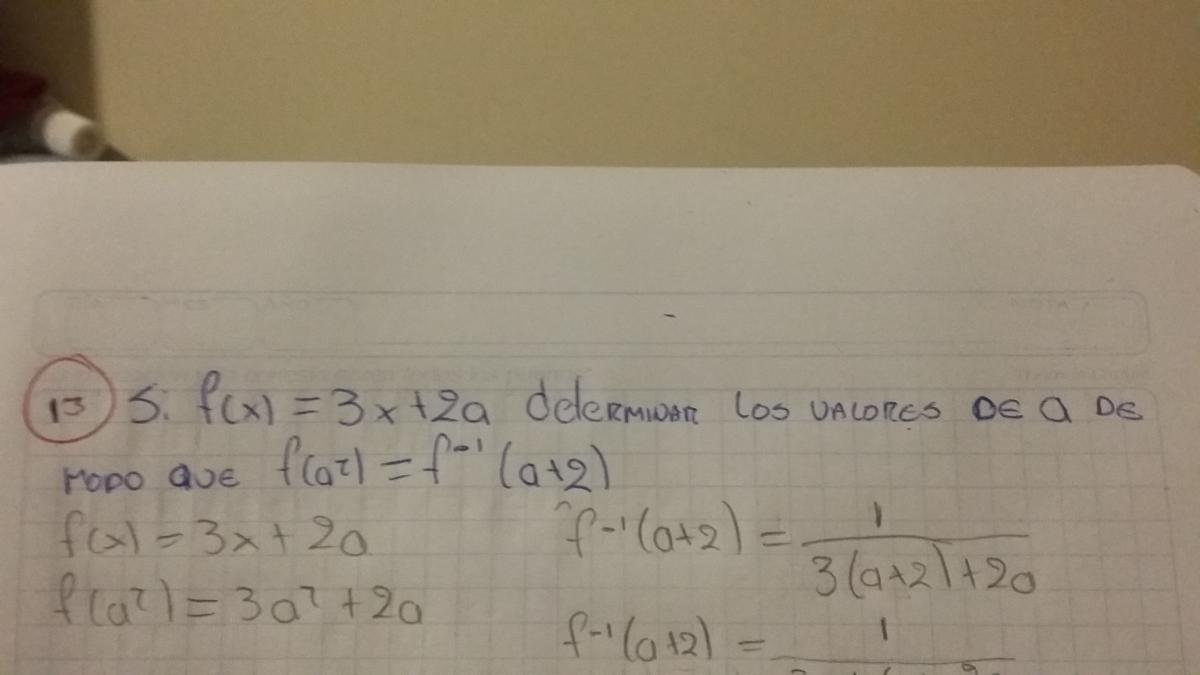 13 Si f(x) = 3x+2a determinar los valores de a de
modo que f(a²) = f⁻¹(a+2)
f(x) = 3x + 2a
f(a²) = 3a² + 2a
f⁻¹(a+2) = 1 / 3(a+2)+2a
f⁻¹(a+2) = 1